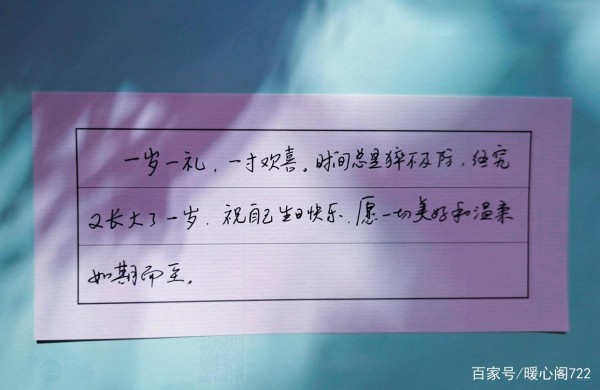 一岁一礼，一寸欢喜。时间总是猝不及防，终究
又长大了一岁，祝自己生日快乐，愿一切美好和温柔
如期而至。
百家号/暖心阁722